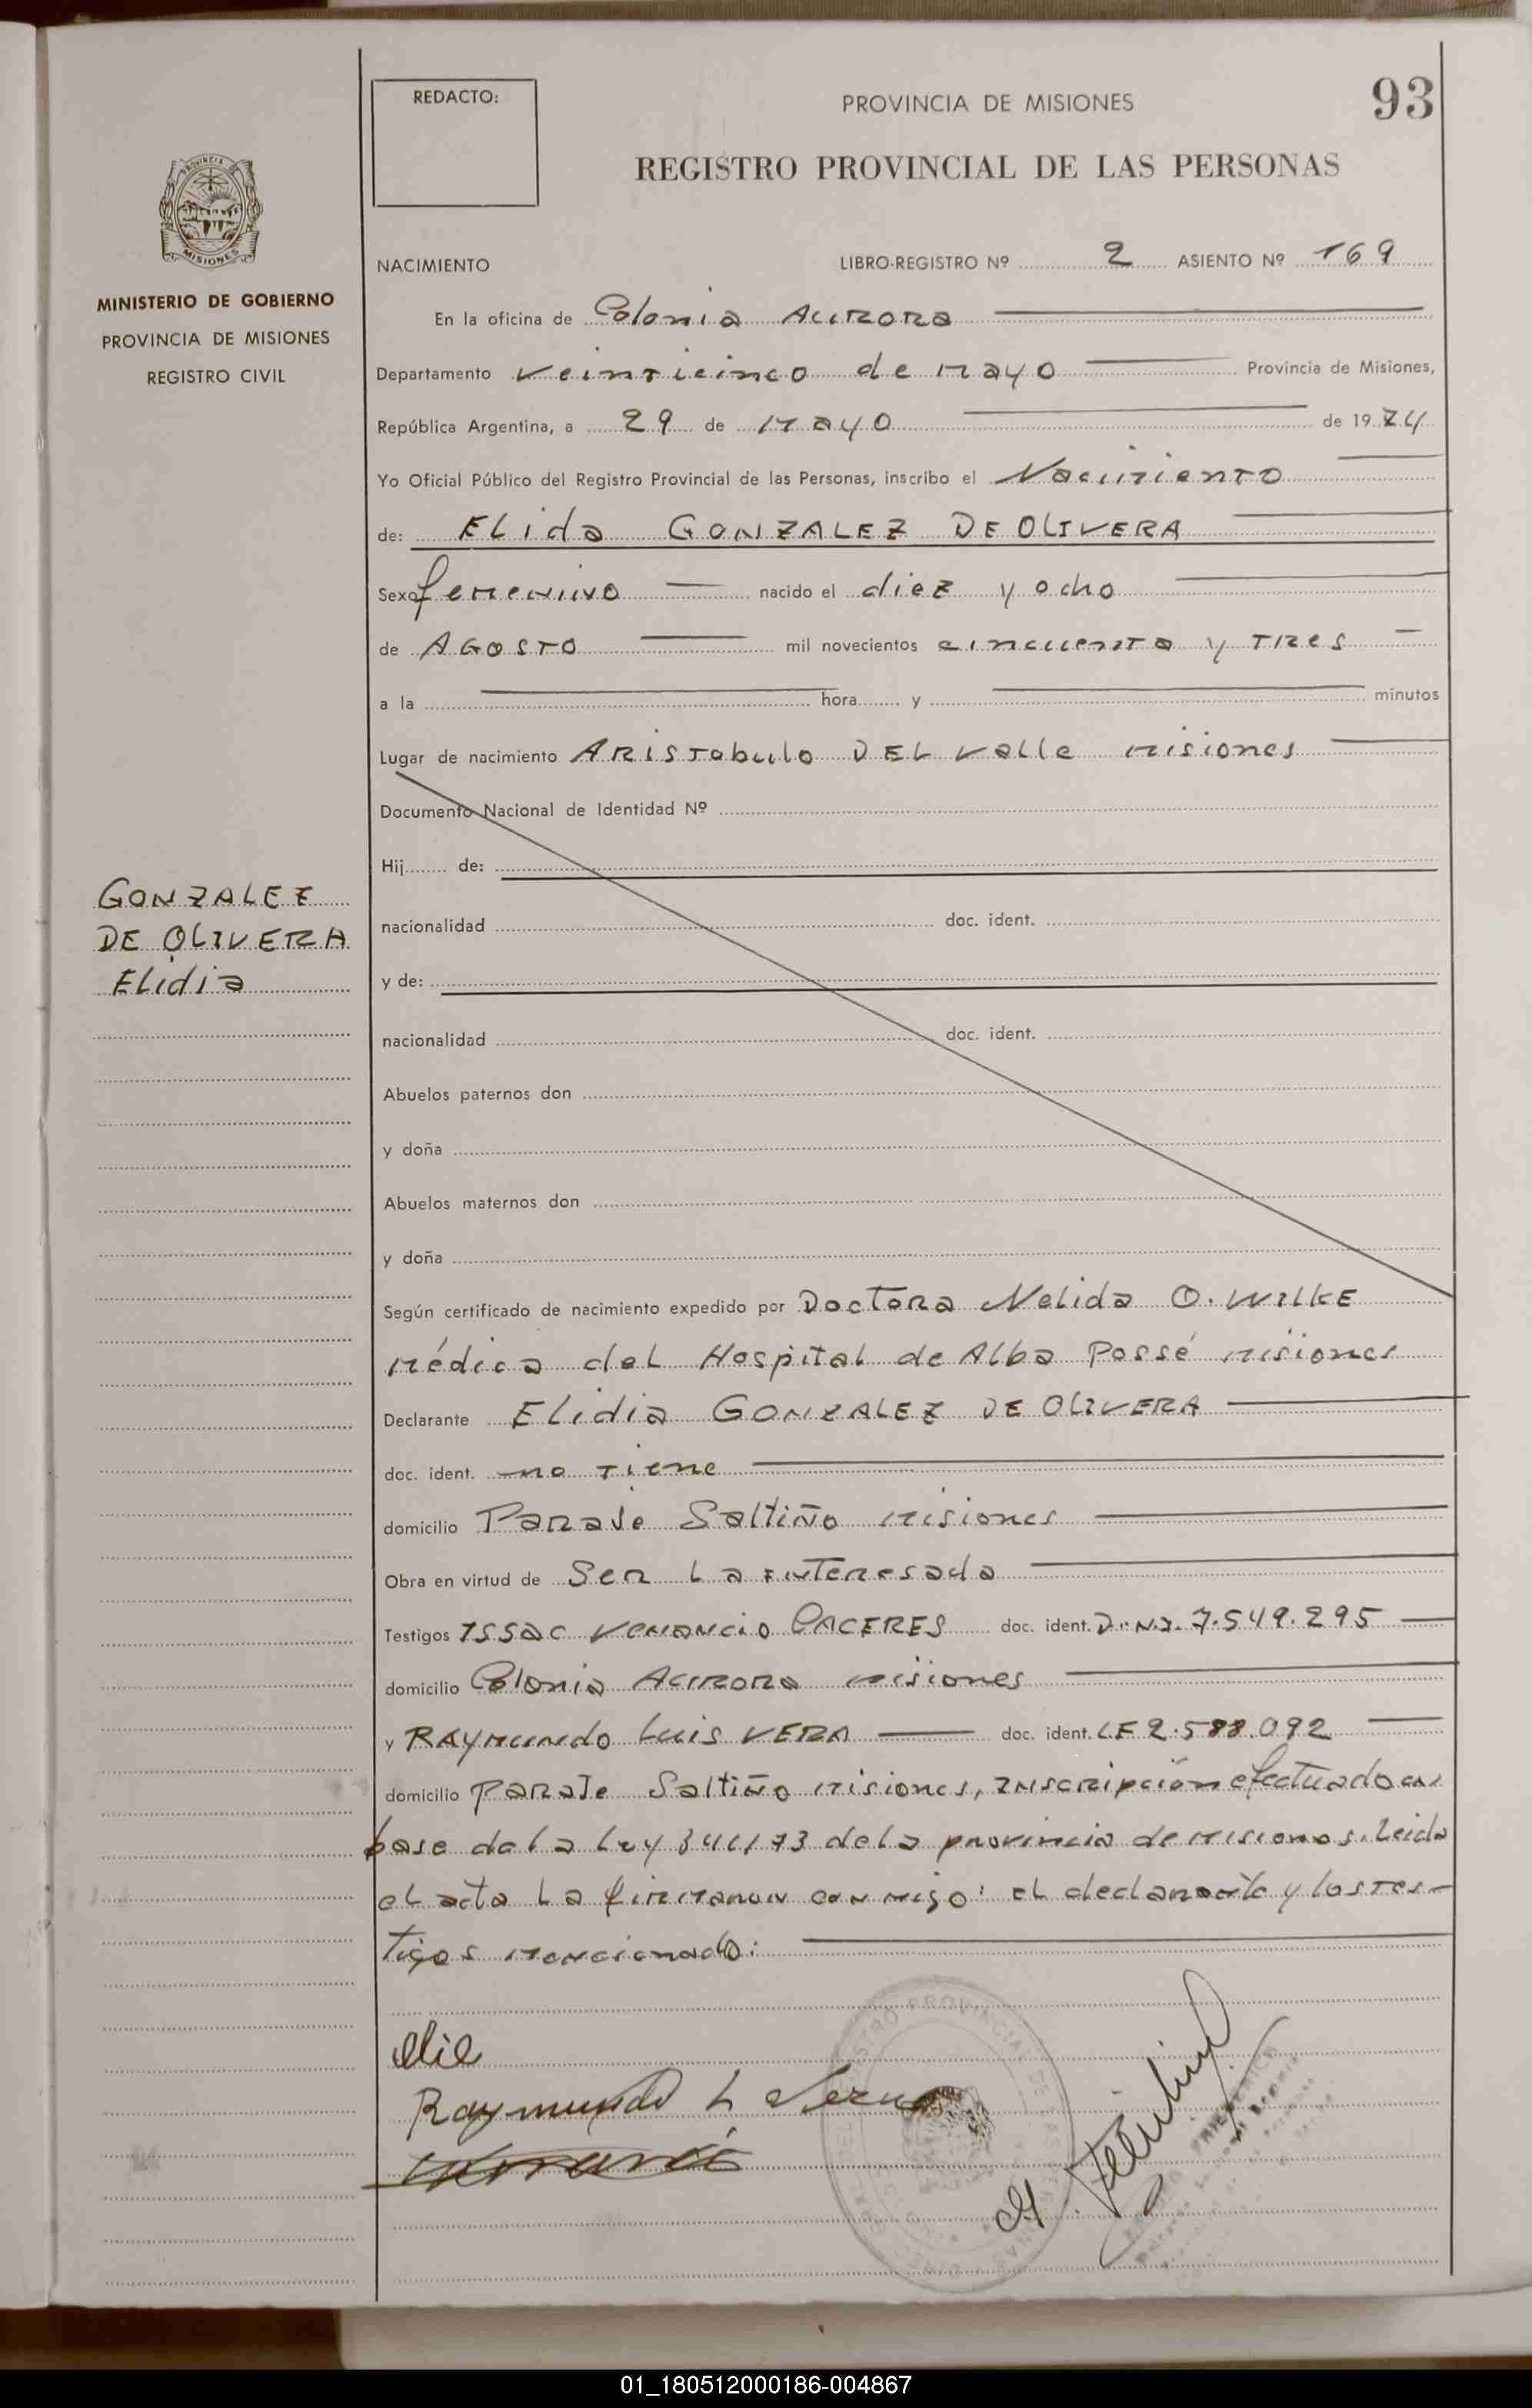 REDACTO:
PROVINCIA DE MISIONES
93
REGISTRO PROVINCIAL DE LAS PERSONAS
PROVINCIA
MISIONES
MINISTERIO DE GOBIERNO
PROVINCIA DE MISIONES
REGISTRO CIVIL
NACIMIENTO LIBRO-REGISTRO Nº 2 ASIENTO Nº 169
En la oficina de Colonia Aurora
Departamento veinticinco de mayo Provincia de Misiones,
República Argentina, a 29 de mayo de 1974
Yo Oficial Público del Registro Provincial de las Personas, inscribo el Nacimiento
de: ELida GONZALEZ DE OLIVERA
Sexo femenino nacido el diez y ocho
de AGOSTO mil novecientos cincuenta y tres
a la hora y minutos
Lugar de nacimiento ARistobulo DEL valle misiones
Documento Nacional de Identidad Nº
Hij de:
GONZALEZ
DE OLIVERA
ELidia
nacionalidad doc. ident.
y de:
nacionalidad doc. ident.
Abuelos paternos don
y doña
Abuelos maternos don
y doña
Según certificado de nacimiento expedido por Doctora Nelida O. WILKE
médica del Hospital de Alba Possé misiones
Declarante Elidia GONZALEZ DE OLIVERA
doc. ident. no tiene
domicilio Paraje Saltiño misiones
Obra en virtud de Ser La interesada
Testigos Issac Venancio CACERES doc. ident. D.N.I. 7.549.295
domicilio Colonia Aurora misiones
y RAYmundo Luis VERA doc. ident. LE 2.588.092
domicilio Paraje Saltiño misiones, inscripción efectuado en
base de la Ley 341/73 de la provincia de misiones. Leida
el acta La firmaron con migo: el declarante y los tes-
tigos mencionado:
Raymundo L Vera
REGISTRO PROVINCIAL DE LAS PERSONAS
01_180512000186-004867